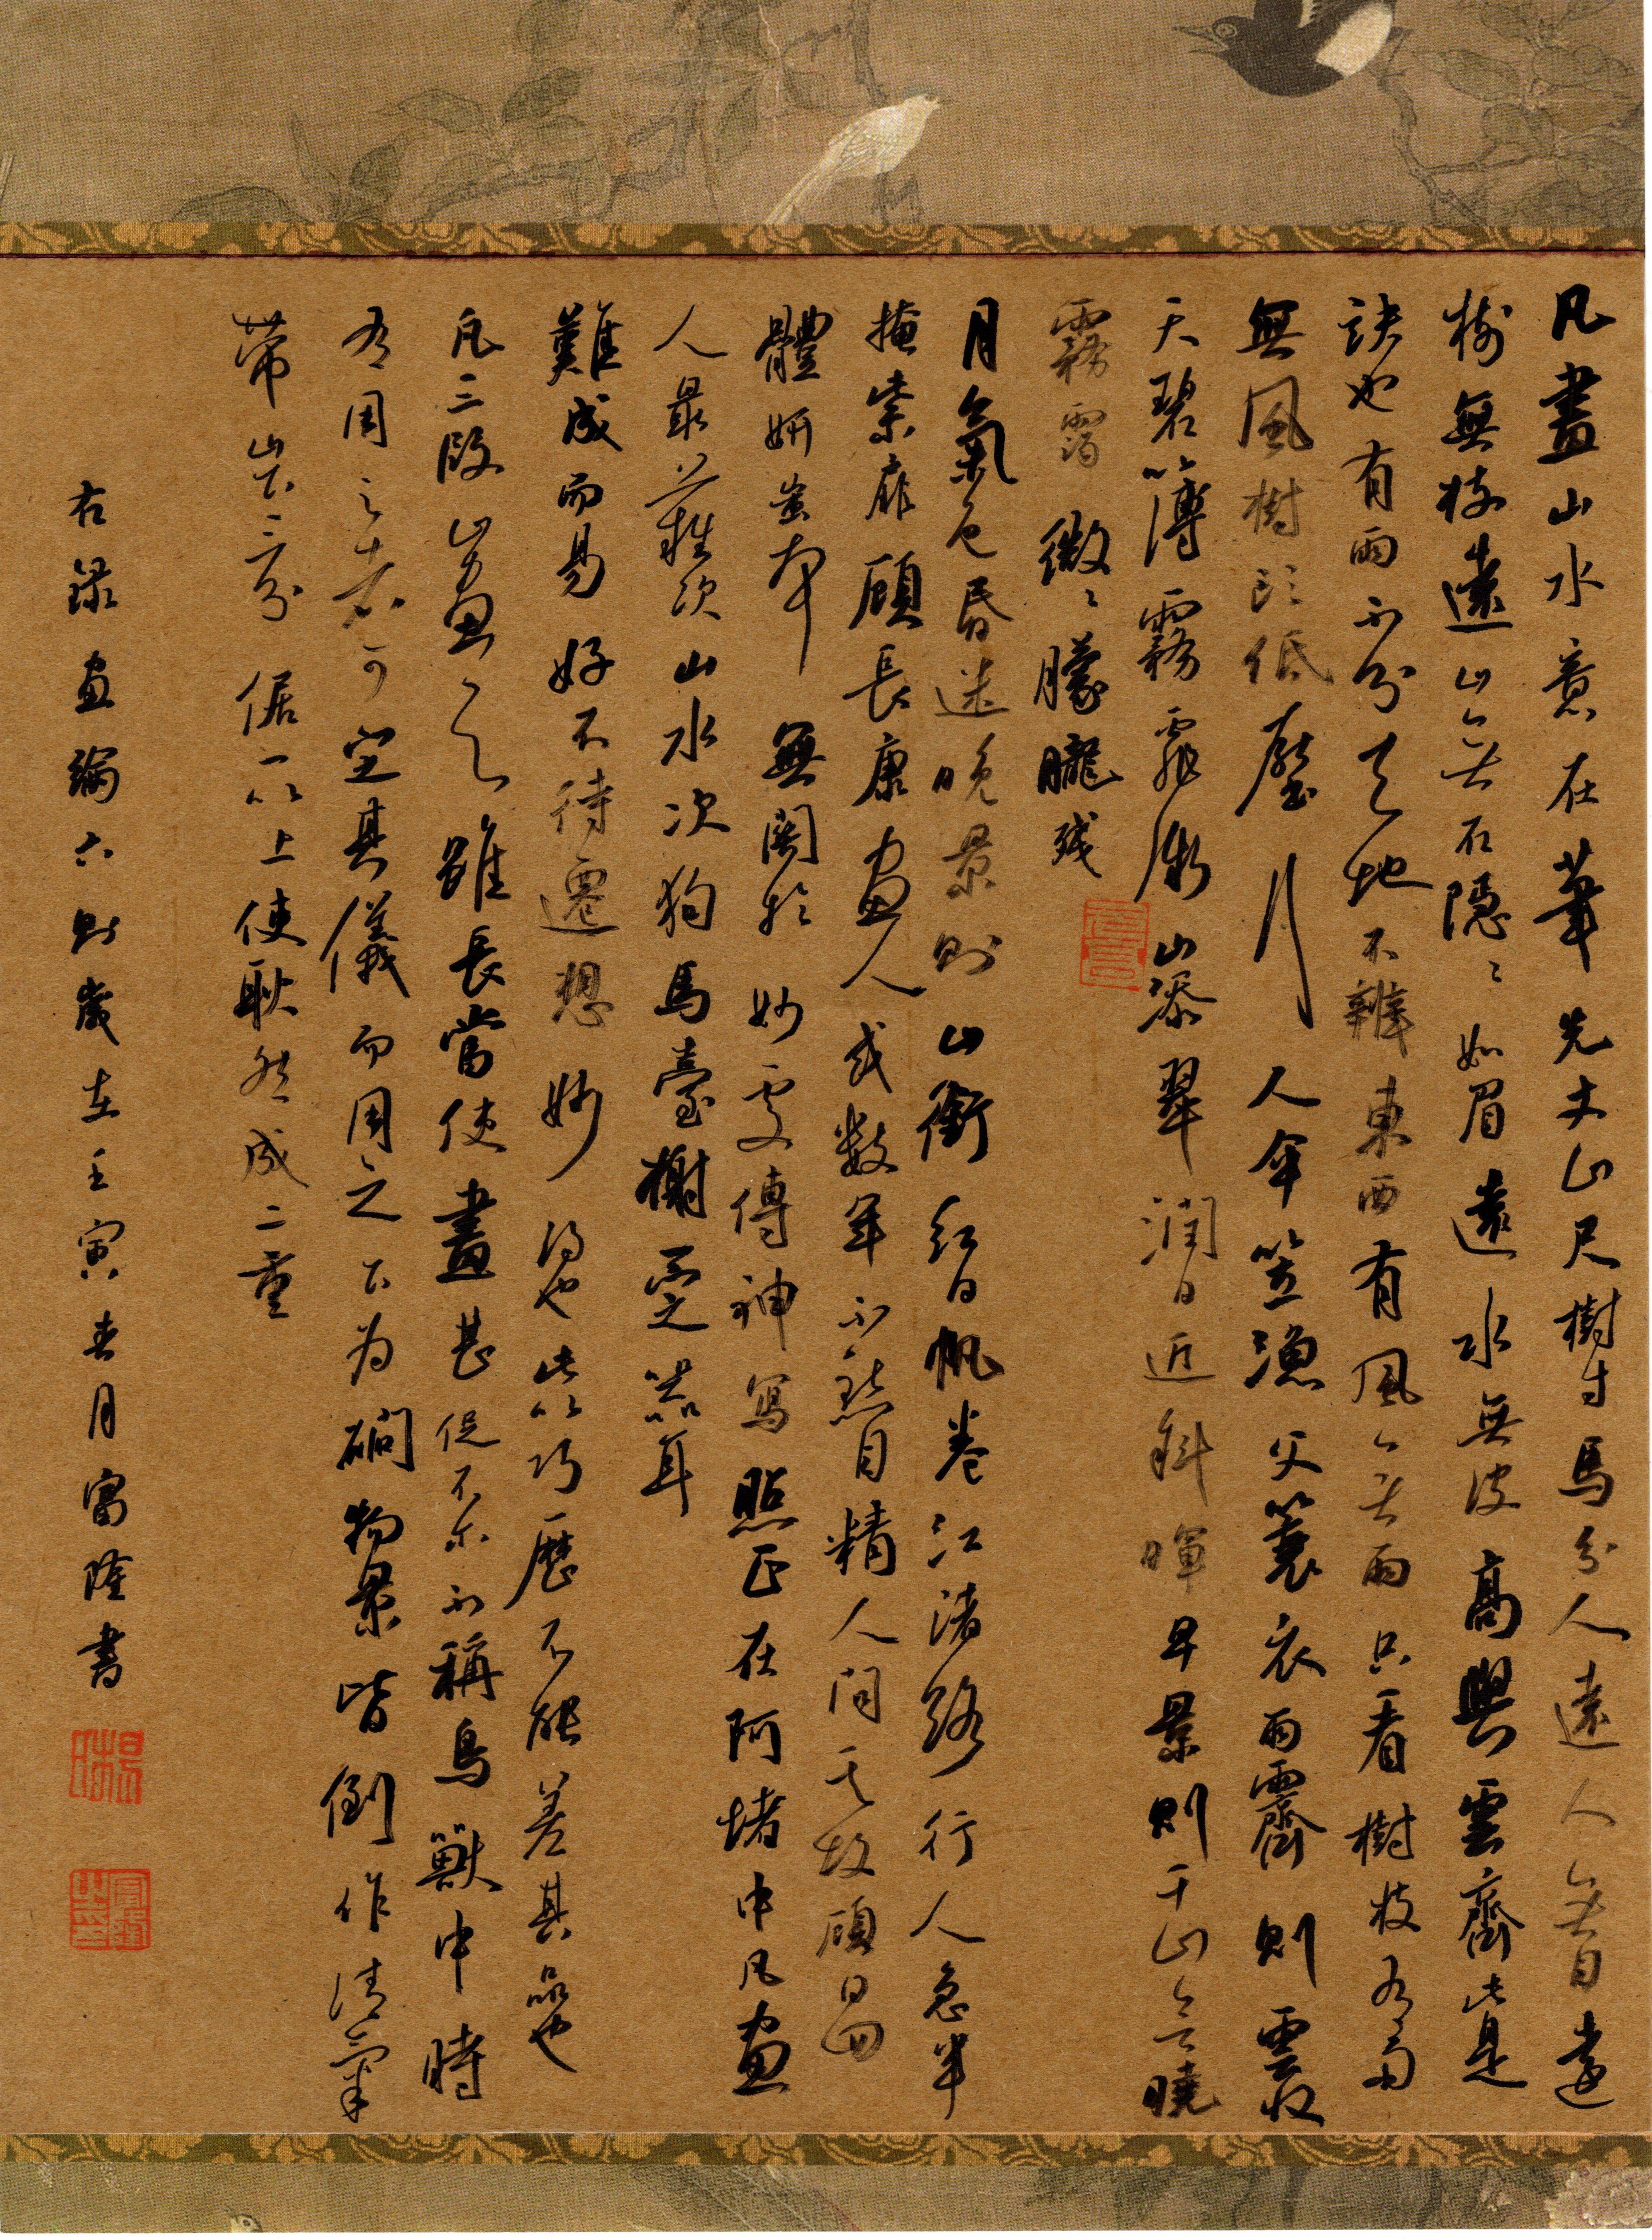 凡畫山水意在筆先丈山尺樹寸馬分人遠人無目遠
樹無枝遠山無石隱〻如眉遠水無波高與雲齊此是
訣也有雨不分天地不辨東西有風無雨只看樹枝有雨
無風樹頭低壓行人傘笠漁父蓑衣雨霽則雲收
天碧薄霧霏微山添翠潤日近斜暉早景則千山欲曉
霧靄微〻朦朧殘
月氣色昏迷晚景則山銜紅日帆卷江渚路行人急半
掩柴扉顧長康畫人或數年不點目精人問其故顧曰四
體妍蚩本無關於妙處傳神寫照正在阿堵中凡畫
人最難次山水次狗馬臺榭一定器耳
難成而易好不待遷想妙得也此以巧歷不能差其品也
凡三段山畫之雖長當使畫甚促不爾不稱鳥獸中時
有用之者可定其儀而用之下為磵物景皆倒作清氣
帶山下三分倨一以上使耿然成二重
右錄畫論六則歲在壬寅春月富隆書